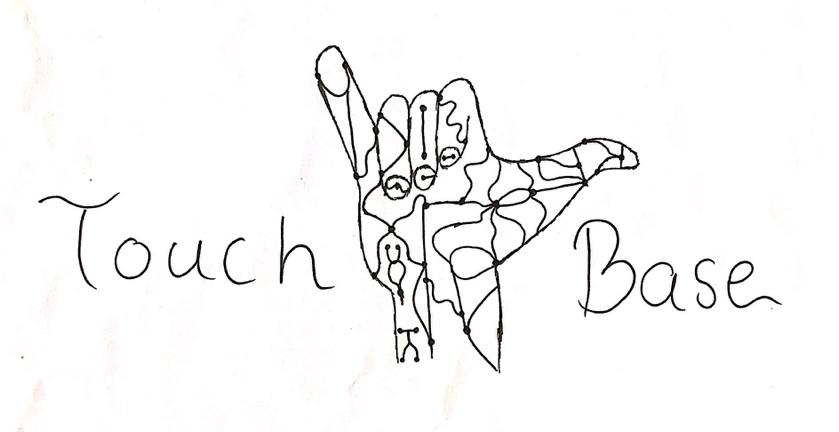 Touch Base